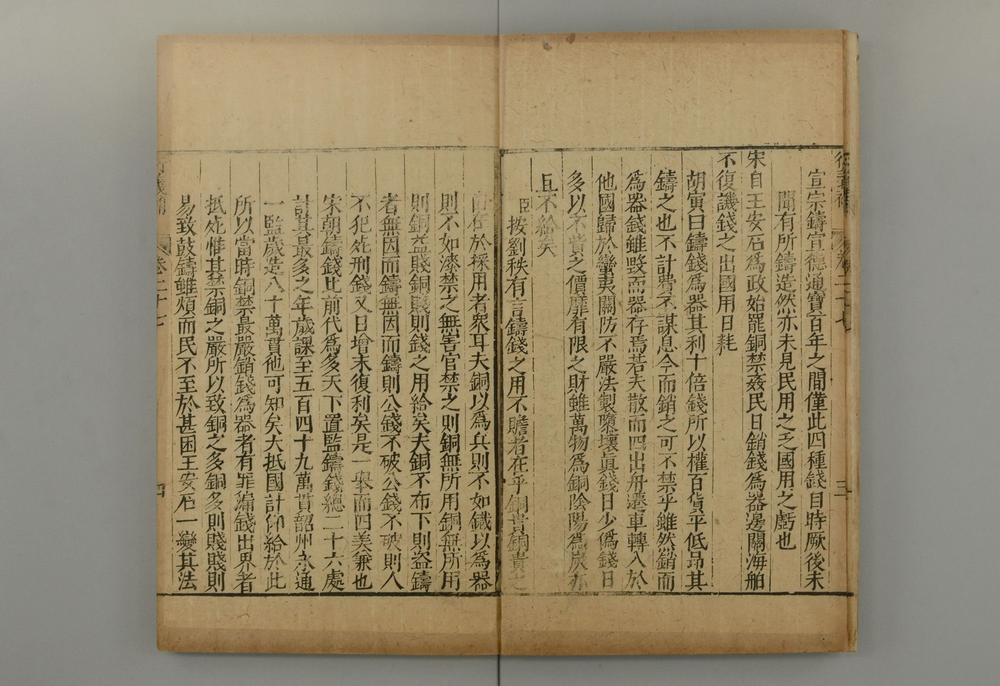 宣宗鑄宣德通寶百年之間僅此四種錢目時厥後未
聞有所鑄造然亦未見民用之乏國用之虧也
宋自王安石為政始罷銅禁姦民日銷錢為器邊關海舶
不復譏錢之出國用日耗
胡寅曰鑄錢為器其利十倍錢所以權百貨平低昂其
鑄之也不計費不謀息今而銷之可不禁乎雖然銷而
為器錢雖毀而器存焉若夫散而四出舟遷車轉入於
他國歸於蠻夷關防不嚴法製隳壞真錢日少偽錢日
多以不貲之價靡有限之財雖萬物為銅陰陽為炭亦
且不給矣
臣按劉秩有言鑄錢之用不贍者在乎銅貴銅貴之
由在於採用者衆耳夫銅以為兵則不如鐵以為器
則不如漆禁之無害官禁之則銅無所用銅無所用
則銅益賤銅賤則錢之用給矣夫銅不布下則盜鑄
者無因而鑄無因而鑄則公錢不破公錢不破則人
不犯死刑錢又日增末復利矣是一舉而四美兼也
宋朝鑄錢比前代為多天下置監鑄錢總二十六處
計其最多之年歲課至五百四十九萬貫韶州永通
一監歲造八十萬貫他可知矣大抵國計仰給於此
所以當時銅禁最嚴銷錢為器者有罪漏錢出界者
抵死惟其禁銅之嚴所以致銅之多銅多則賤賤則
易致鼓鑄雖煩而民不至於甚困王安石一變其法
卷二十七
四